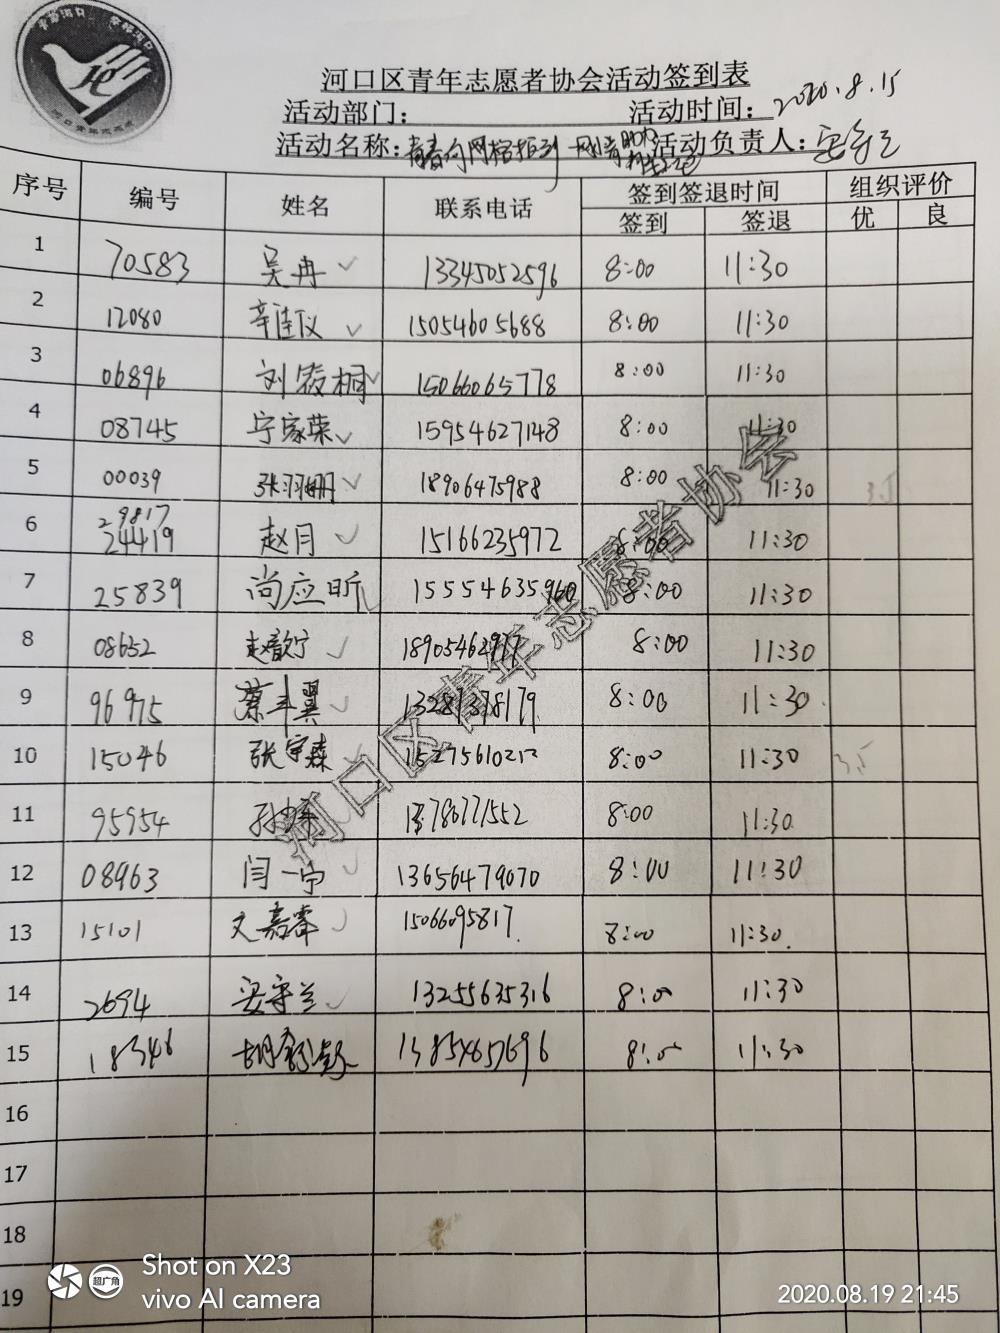 河口区青年志愿者协会活动签到表
活动部门： 活动时间：2020.8.15
活动名称：青春向网格报到 活动负责人：
序号 编号 姓名 联系电话 签到签退时间 组织评价
签到 签退 优 良
1 70583 吴冉 13345052596 8:00 11:30
2 12080 辛佳仪 15054605688 8:00 11:30
3 06896 刘筱桐 15066065778 8:00 11:30
4 08745 宁家荣 15954627148 8:00 11:30
5 00039 张羽姗 18906475988 8:00 11:30
6 29817 24419 赵月 15166235972 8:00 11:30
7 25839 尚应昕 15554635960 8:00 11:30
8 08652 赵歆宁 8:00 11:30
9 96975 蔡斗翼 13287378179 8:00 11:30
10 15046 张宇森 8:00 11:30
11 95954 8:00 11:30
12 08963 闫一宁 13656479070 8:00 11:30
13 15101 文嘉睿 15066095817 8:00 11:30
14 2694 安守兰 13255635316 8:00 11:30
15 18346 8:00 11:30
16
17
18
19
河口区青年志愿者协会
Shot on X23
vivo AI camera
超广角
2020.08.19 21:45